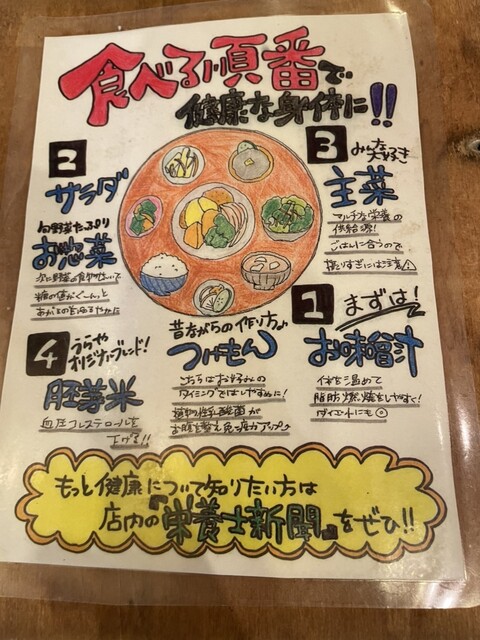 食べる順番で
健康な身体に!!
2
サラダ
旬野菜たっぷり
お惣菜
次に野菜の食物せんいで
糖の吸収がぐーんっと
3 みんな
大好き
主菜
マルチな栄養の
供給源!
ごはんに合うので
摂りすぎには注意
1 まずは!
お味噌汁
体を温めて
脂肪燃焼をしやすく!
ダイエットにも◎
4 うらや
オリジナルブレンド!
胚芽米
血圧コレステロールを
下げる!!
昔ながらの作り方♪
つけもん
こちらはお好みの
タイミングではしやすめに!
植物性乳酸菌が
お腹を整え免疫力アップ♪
もっと健康について知りたい方は
店内の『栄養士新聞』をぜひ!!